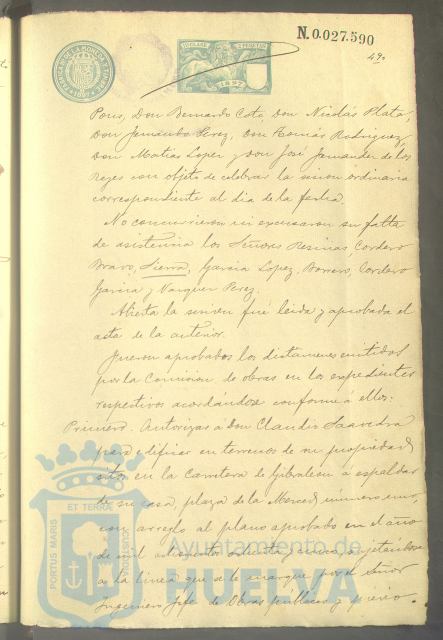 N.0.027.590
1897
49.
Pons, Don Bernardo Coto, Don Nicolás Plata,
Don Fernando Perez, Don Tomás Rodriguez,
Don Matias Lopez y Don José Fernandez de los
Reyes con objeto de celebrar la sesion ordinaria
correspondiente al dia de la fecha.
No concurrieron ni escusaron su falta
de asistencia los Señores Resinas, Cordero
Bravo, Sierra, Garcia Lopez, Borrero, Cordero
Garcia y Vazquez Perez.
Abierta la sesion fué leida y aprobada el
acta de la anterior.
Fueron aprobados los dictamenes emitidos
por la Comision de obras en los expedientes
respectivos acordándose conforme á ellos:
Primero. Autorizar á don Claudio Saavedra
para edificar en terrenos de su propiedad
sitos en la Carretera de Gibraleon á espaldas
de su casa, plaza de la Merced número uno,
con arreglo al plano aprobado en el año
de mil ochocientos ochenta y cinco sujetándose
á la linea que se le marque por el Señor
Ingeniero Jefe de Obras públicas y previo
PORTUS MARIS
ET TERRA
CUSTODIA
Ayuntamiento de
HUELVA